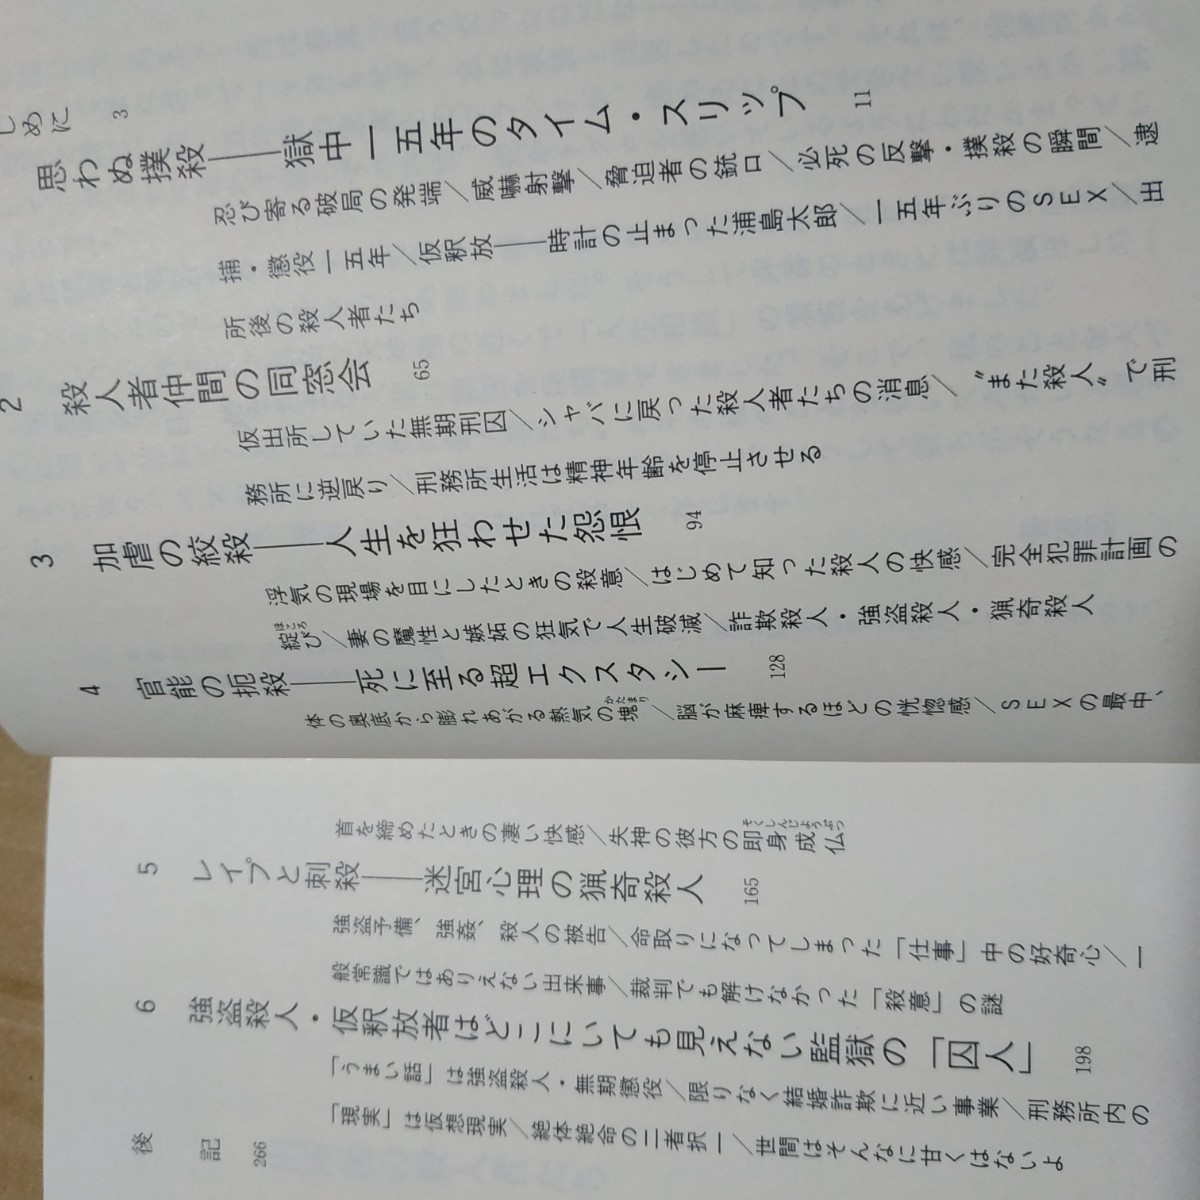 じめに
3
思わぬ撲殺――獄中一五年のタイム・スリップ 11
忍び寄る破局の発端／威嚇射撃／脅迫者の銃口／必死の反撃・撲殺の瞬間／逮
捕・懲役一五年／仮釈放――時計の止まった浦島太郎／一五年ぶりのSEX／出
所後の殺人者たち
2 殺人者仲間の同窓会 65
仮出所していた無期刑囚／シャバに戻った殺人者たちの消息／〝また殺人〟で刑
務所に逆戻り／刑務所生活は精神年齢を停止させる
3 加虐の絞殺――人生を狂わせた怨恨 94
浮気の現場を目にしたときの殺意／はじめて知った殺人の快感／完全犯罪計画の
綻び／妻の魔性と嫉妬の狂気で人生破滅／詐欺殺人・強盗殺人・猟奇殺人
ほころ
4 官能の扼殺――死に至る超エクスタシー 128
体の奥底から膨れあがる熱気の塊／脳が麻痺するほどの恍惚感／SEXの最中、
かたまり
首を締めたときの凄い快感／失神の彼方の即身成仏
そくしんじょうぶつ
5 レイプと刺殺――迷宮心理の猟奇殺人 165
強盗予備、強姦、殺人の被告／命取りになってしまった「仕事」中の好奇心／一
般常識ではありえない出来事／裁判でも解けなかった「殺意」の謎
6 強盗殺人・仮釈放者はどこにいても見えない監獄の「囚人」 198
「うまい話」は強盗殺人・無期懲役／限りなく結婚詐欺に近い事業／刑務所内の
「現実」は仮想現実／絶体絶命の二者択一／世間はそんなに甘くはないよ
後記 266